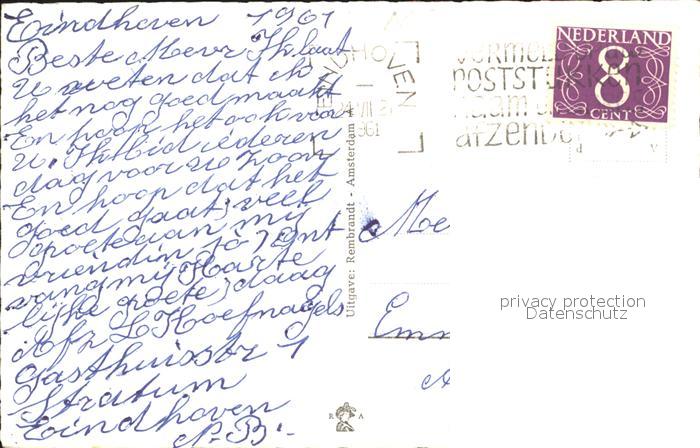 Eindhoven 1961
Beste Mevr Ik laat
U weten dat ik
het nog goed maakt
En hoop het ook voor
U. Ik bid iederen
dag voor U zoon
En hoop dat het
goed gaat; veel
groete aan mij
vriendin jo;
vang mij Harte
lijke groete; daag
Afz L Hoefnagels
Gasthuisstr 1
Stratum
Eindhoven
N.B.-
Uitgave: Rembrandt - Amsterdam
R A
EINDHOVEN
24 VII 1961
POSTSTUKKEN
naam
afzender
NEDERLAND
8
CENT
Moe
Emm
privacy protection
Datenschutz